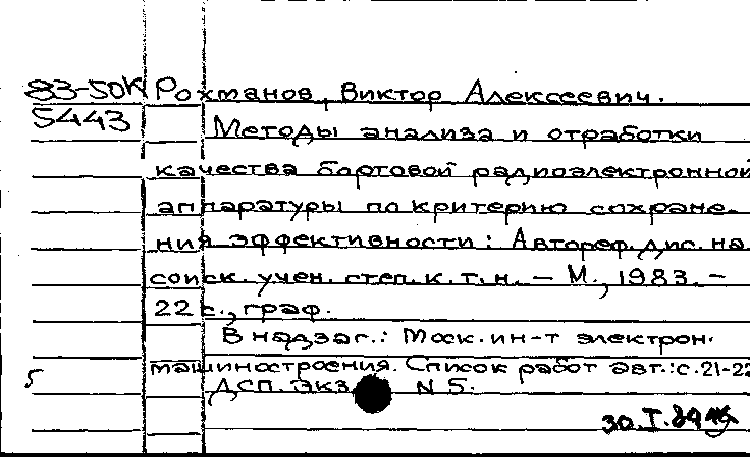 83-50К Рохманов, Виктор Алексеевич.
5443 Методы анализа и отработки
качества бортовой радиоэлектронной
аппаратуры по критерию сохране-
ния эффективности: Автореф. дис. на
соиск. учен. степ. к. т. н. – М., 1983. –
22 с., граф.
В надзаг.: Моск. ин-т электрон.
машиностроения. Список работ авт.: с. 21-22
5 ДСП. Экз. N 5.
30.I.84